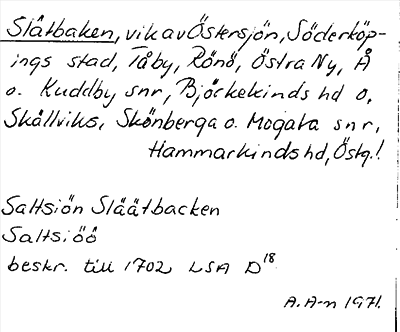 Slåtbaken, vik av Östersjön, Söderköp-
ings stad, Tåby, Rönö, Östra Ny, Å
o. Kuddby snr, Björkekinds hd o.
Skällviks, Skönberga o. Mogata snr,
Hammarkinds hd, Östg.!
Saltsiön Slåätbacken
Saltsiöö
beskr. till 1702 LSA D18
A. A-n 1971.